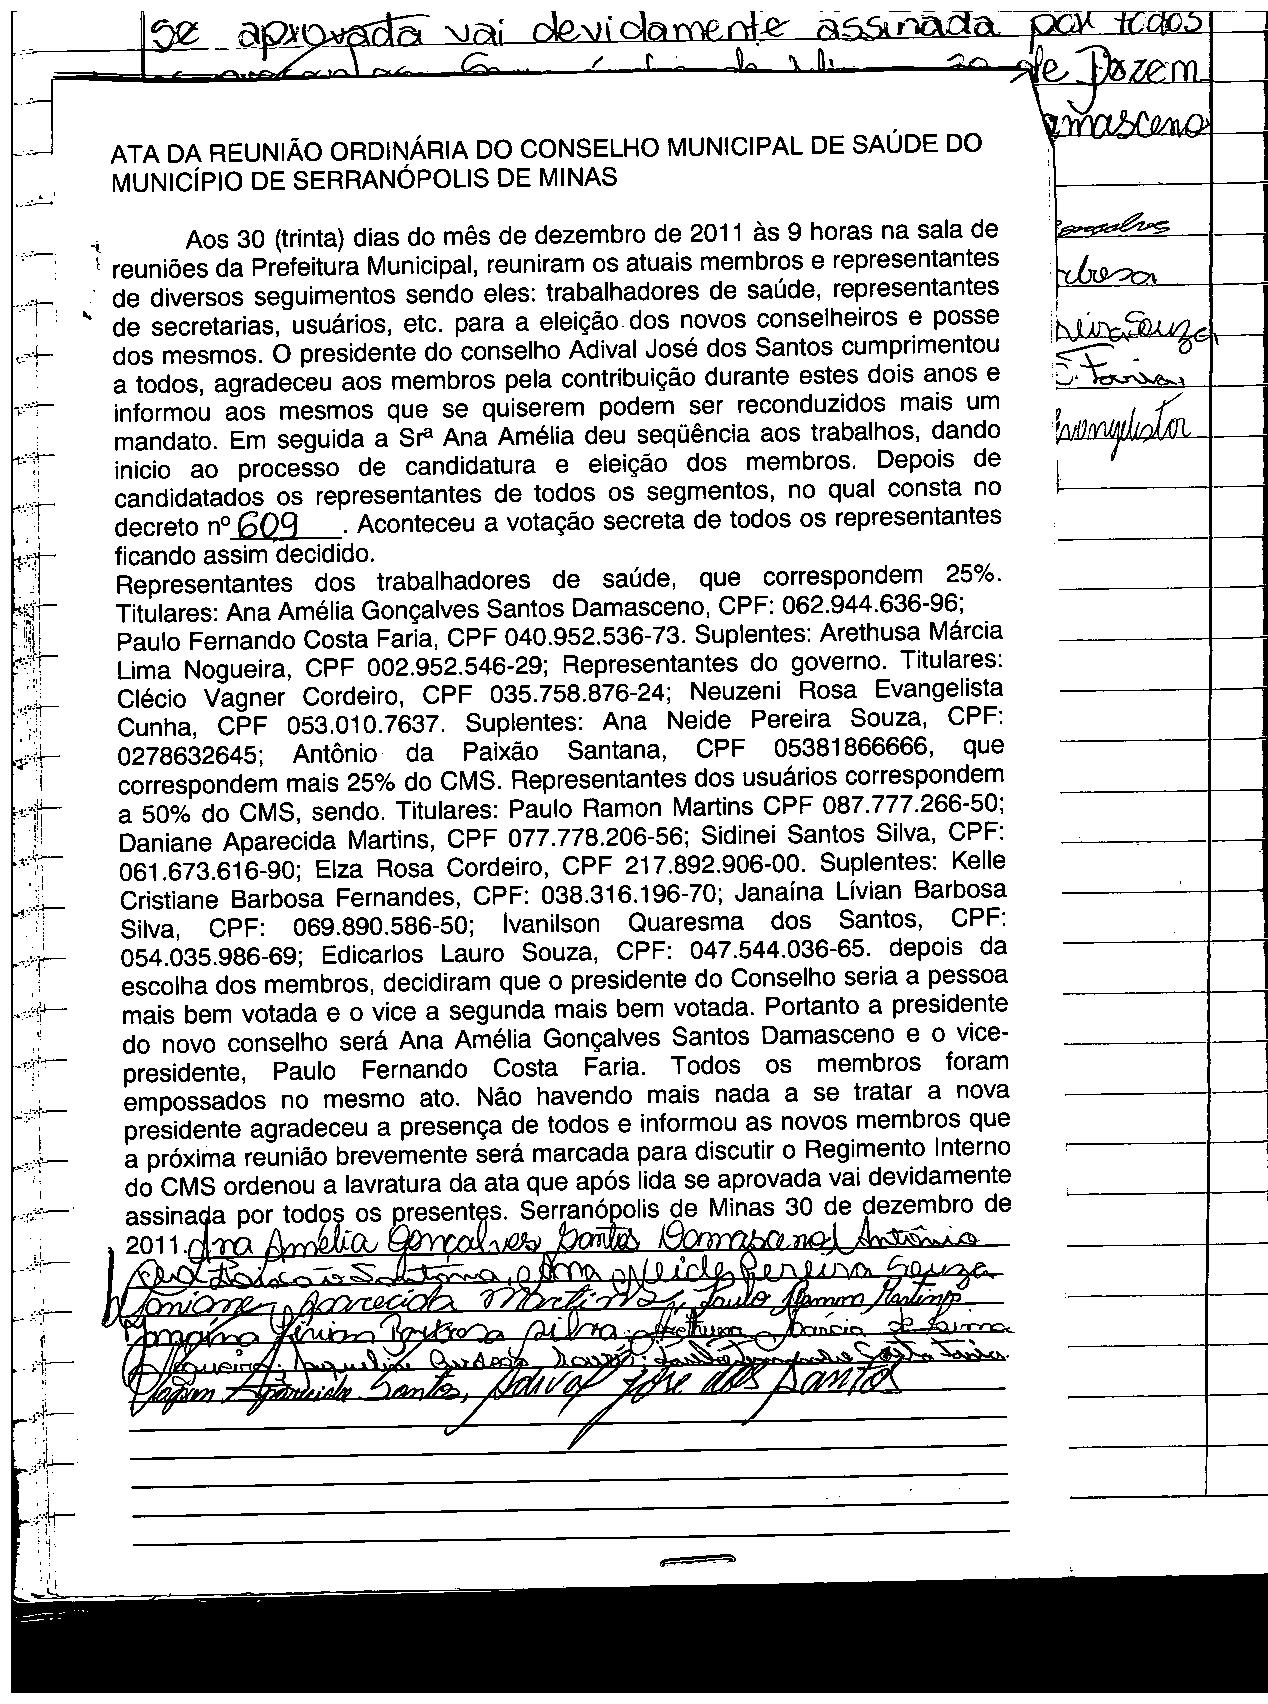 se aprovada vai devidamente assinada por todos
de Dozem
amasceno
ATA DA REUNIÃO ORDINÁRIA DO CONSELHO MUNICIPAL DE SAÚDE DO
MUNICÍPIO DE SERRANÓPOLIS DE MINAS
Aos 30 (trinta) dias do mês de dezembro de 2011 às 9 horas na sala de
reuniões da Prefeitura Municipal, reuniram os atuais membros e representantes
de diversos seguimentos sendo eles: trabalhadores de saúde, representantes
de secretarias, usuários, etc. para a eleição dos novos conselheiros e posse
dos mesmos. O presidente do conselho Adival José dos Santos cumprimentou
a todos, agradeceu aos membros pela contribuição durante estes dois anos e
informou aos mesmos que se quiserem podem ser reconduzidos mais um
mandato. Em seguida a Srª Ana Amélia deu seqüência aos trabalhos, dando
inicio ao processo de candidatura e eleição dos membros. Depois de
candidatados os representantes de todos os segmentos, no qual consta no
decreto nº 609. Aconteceu a votação secreta de todos os representantes
ficando assim decidido.
Representantes dos trabalhadores de saúde, que correspondem 25%.
Titulares: Ana Amélia Gonçalves Santos Damasceno, CPF: 062.944.636-96;
Paulo Fernando Costa Faria, CPF 040.952.536-73. Suplentes: Arethusa Márcia
Lima Nogueira, CPF 002.952.546-29; Representantes do governo. Titulares:
Clécio Vagner Cordeiro, CPF 035.758.876-24; Neuzeni Rosa Evangelista
Cunha, CPF 053.010.7637. Suplentes: Ana Neide Pereira Souza, CPF:
0278632645; Antônio da Paixão Santana, CPF 05381866666, que
correspondem mais 25% do CMS. Representantes dos usuários correspondem
a 50% do CMS, sendo. Titulares: Paulo Ramon Martins CPF 087.777.266-50;
Daniane Aparecida Martins, CPF 077.778.206-56; Sidinei Santos Silva, CPF:
061.673.616-90; Elza Rosa Cordeiro, CPF 217.892.906-00. Suplentes: Kelle
Cristiane Barbosa Fernandes, CPF: 038.316.196-70; Janaína Lívian Barbosa
Silva, CPF: 069.890.586-50; Ivanilson Quaresma dos Santos, CPF:
054.035.986-69; Edicarlos Lauro Souza, CPF: 047.544.036-65. depois da
escolha dos membros, decidiram que o presidente do Conselho seria a pessoa
mais bem votada e o vice a segunda mais bem votada. Portanto a presidente
do novo conselho será Ana Amélia Gonçalves Santos Damasceno e o vice-
presidente, Paulo Fernando Costa Faria. Todos os membros foram
empossados no mesmo ato. Não havendo mais nada a se tratar a nova
presidente agradeceu a presença de todos e informou as novos membros que
a próxima reunião brevemente será marcada para discutir o Regimento Interno
do CMS ordenou a lavratura da ata que após lida se aprovada vai devidamente
assinada por todos os presentes. Serranópolis de Minas 30 de dezembro de
2011. Ana Amélia Gonçalves Santos Damasceno, Antônio
da Paixão Santana, Ana Neide Pereira Souza
Daniane Aparecida Martins, Paulo Ramon Martins
Janaína Lívian Barbosa Silva, Arethusa Márcia de Lima
Nogueira, Jaqueline Souza, Paulo Fernando Costa Faria
Aparecida Santos, Adival José dos Santos